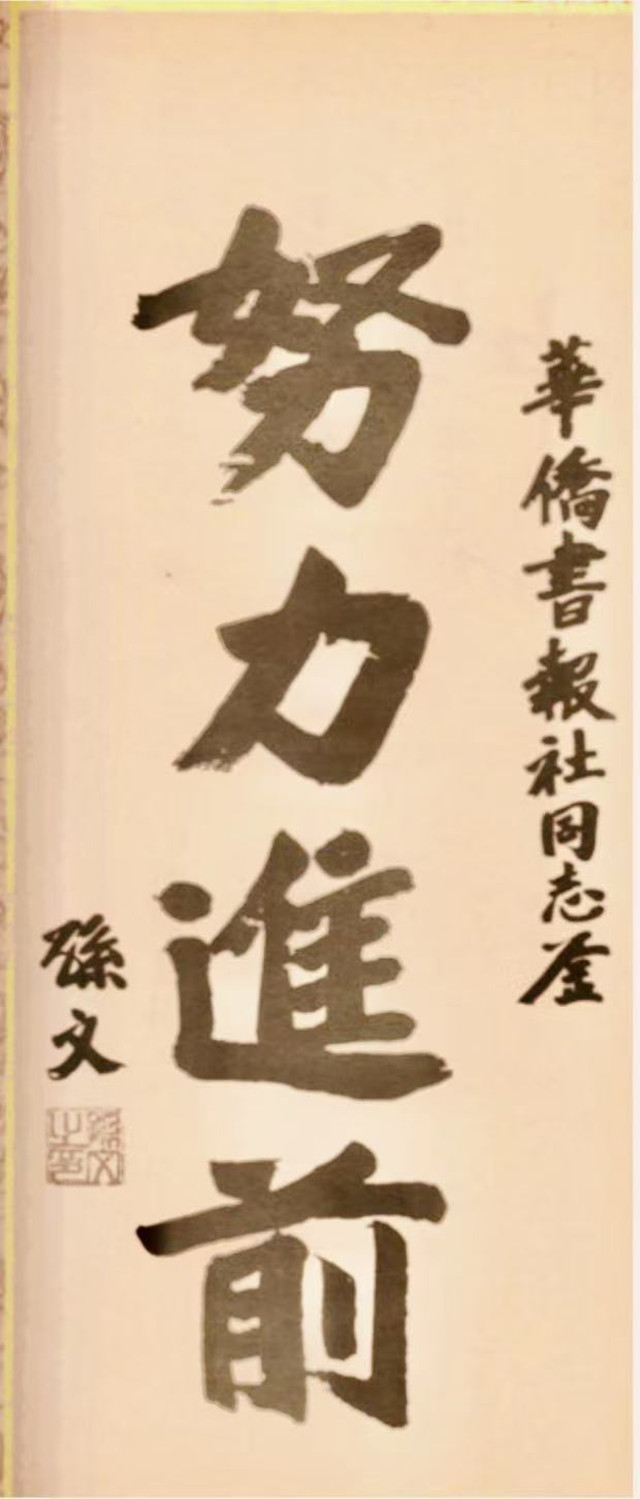 華僑書報社同志釜
努力進前
孫文
孫文之印